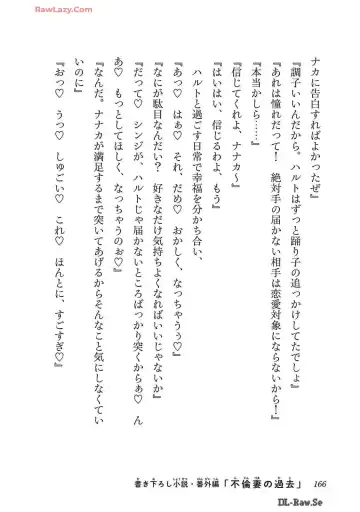 RawLazy.Com
ナカに告白すればよかったぜ』
『調子いいんだから。ハルトはずっと踊り子の追っかけしてたでしょ』
『あれは憧れだって！　絶対手の届かない相手は恋愛対象にならないから！』
『本当かしら……』
『信じてくれよ、ナナカ〜』
『はいはい、信じるわよ、もう』
ハルトと過ごす日常で幸福を分かち合い、
『あっ♡　はぁ♡　それ、だめ♡　おかしく、なっちゃうぅ♡』
『なにが駄目なんだい？　好きなだけ気持ちよくなればいいじゃないか』
『だって♡　シンジが、ハルトじゃ届かないところばっかり突くからぁ♡　ん
あ♡　もっとしてほしく、なっちゃうのぉ♡』
『なんだ。ナナカが満足するまで突いてあげるからそんなこと気にしなくてい
いのに』
『おっ♡　うっ♡　しゅごい♡　これ♡　ほんとに、すごすぎ♡』
書き下ろし小説・番外編「不倫妻の過去」 166
DL-Raw.Se